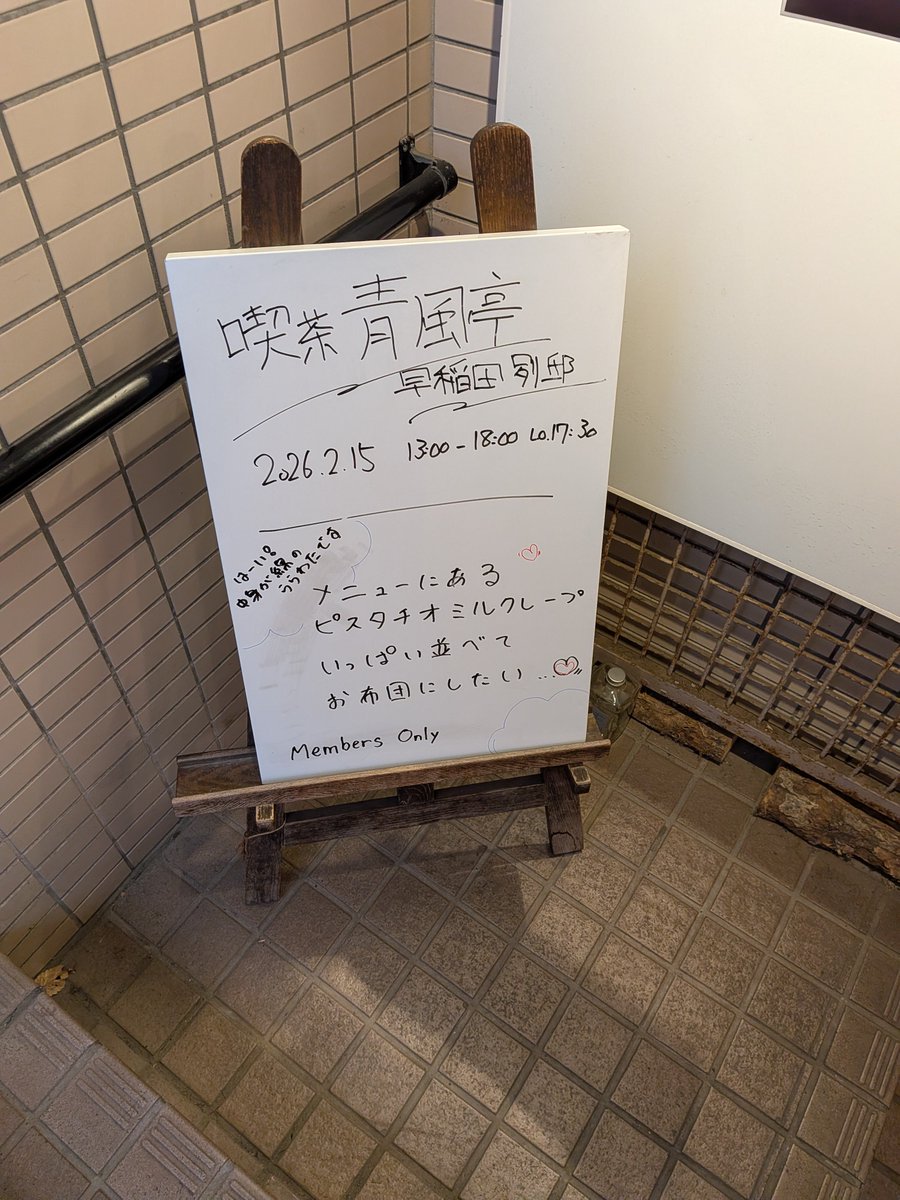 喫茶 青風亭
早稲田別邸
2026.2.15 13:00-18:00 Lo.17:30
はーい。
中身が緑の
うらわたです
メニューにある
ピスタチオミルクレープ
いっぱい並べて
お布団にしたい...
Members Only